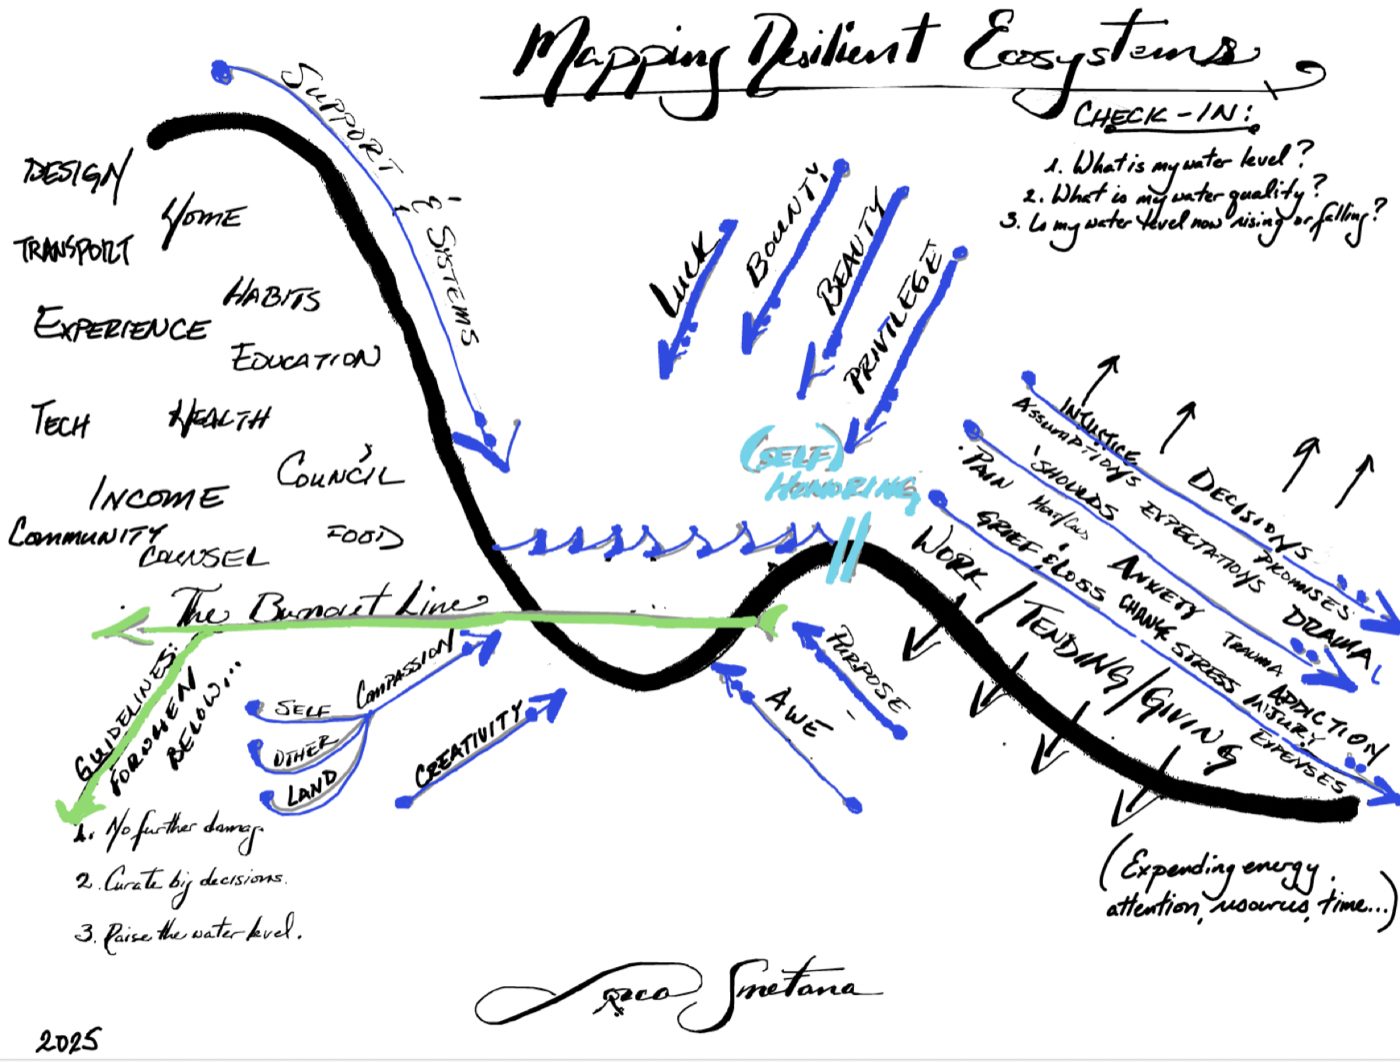 Mapping Resilient Ecosystems
CHECK-IN:
1. What is my water level?
2. What is my water quality?
3. Is my water level now rising or falling?
SUPPORT & SYSTEMS
DESIGN
HOME
TRANSPORT
HABITS
EXPERIENCE
EDUCATION
TECH
HEALTH
COUNCIL
&
INCOME
COMMUNITY
COUNSEL
FOOD
LUCK
BOUNTY
BEAUTY
PRIVILEGE
(SELF)
HONORING
INJUSTICE
DECISIONS
PROMISES
DRAMA
ASSUMPTIONS
EXPECTATIONS
'SHOULDS
ANXIETY
TRAUMA
ADDICTION
PAIN
GRIEF & LOSS
CHANGE
STRESS
INJURY
EXPENSES
WORK / TENDING / GIVING
(Expending energy,
attention, resources, time...)
The Burnout Line
GUIDELINES:
FOR WHEN
BELOW...
1. No further damag.
2. Curate big decisions.
3. Raise the water level.
SELF
OTHER
LAND
COMPASSION
CREATIVITY
AWE
PURPOSE
Smetana
2025